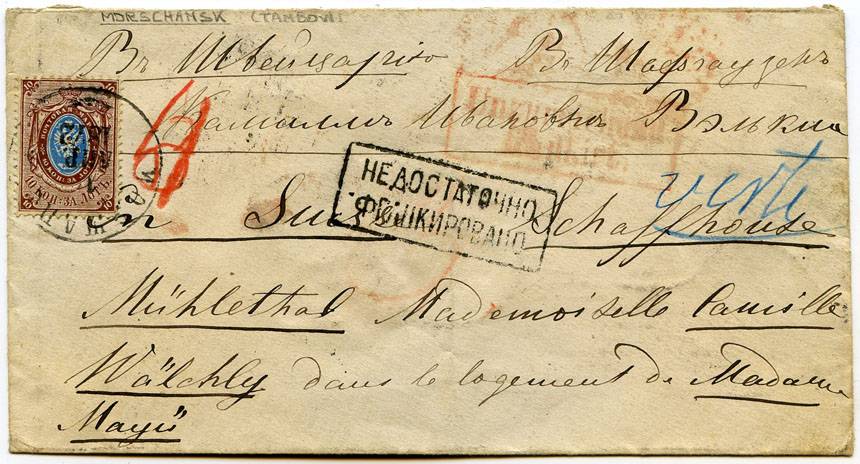 MORSCHANSK (TAMBOV)
Въ Швейцарію Въ Шафгаузенъ
Камиллѣ Ивановнѣ Вэлькли
10 КОП. ЗА ЛОТЪ.
НЕДОСТАТОЧНО
ФРАНКИРОВАНО
En Suisse Schaffhouse
Mühlethal Mademoiselle Camille
Wälchly dans le logement de Madame
Mayü